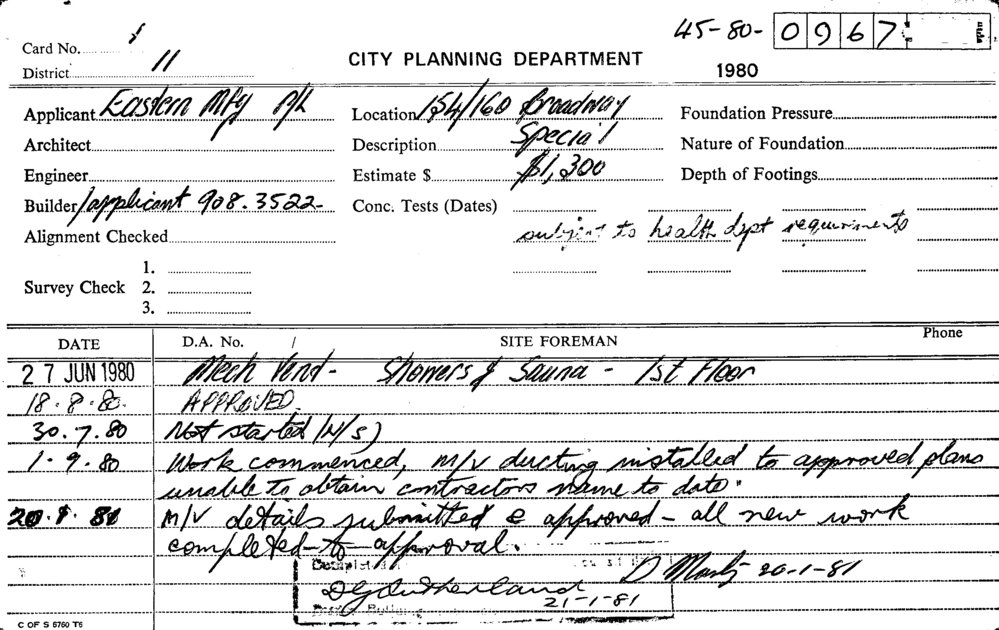 45-80- 0967
Card No. 1
District 11
CITY PLANNING DEPARTMENT
1980
Applicant Eastern Mfg P/L
Location 154/160 Broadway
Foundation Pressure
Architect
Description Special
Nature of Foundation
Engineer
Estimate $ $1,300
Depth of Footings
Builder/applicant 908.3522-
Conc. Tests (Dates)
Alignment Checked
subject to health dept requirements
Survey Check 1.
2.
3.
DATE D.A. No. SITE FOREMAN Phone
27 JUN 1980 Mech Vent- Showers & Sauna - 1st Floor
18.8.80. APPROVED.
30.7.80 Not started (N/S)
1.9.80 Work commenced, m/v ducting installed to approved plans
unable to obtain contractors name to date.
20.1.81 M/V details submitted & approved - all new work
completed to approval.
D 20-1-81
DG Sutherland
21-1-81
C OF S 6760 T6